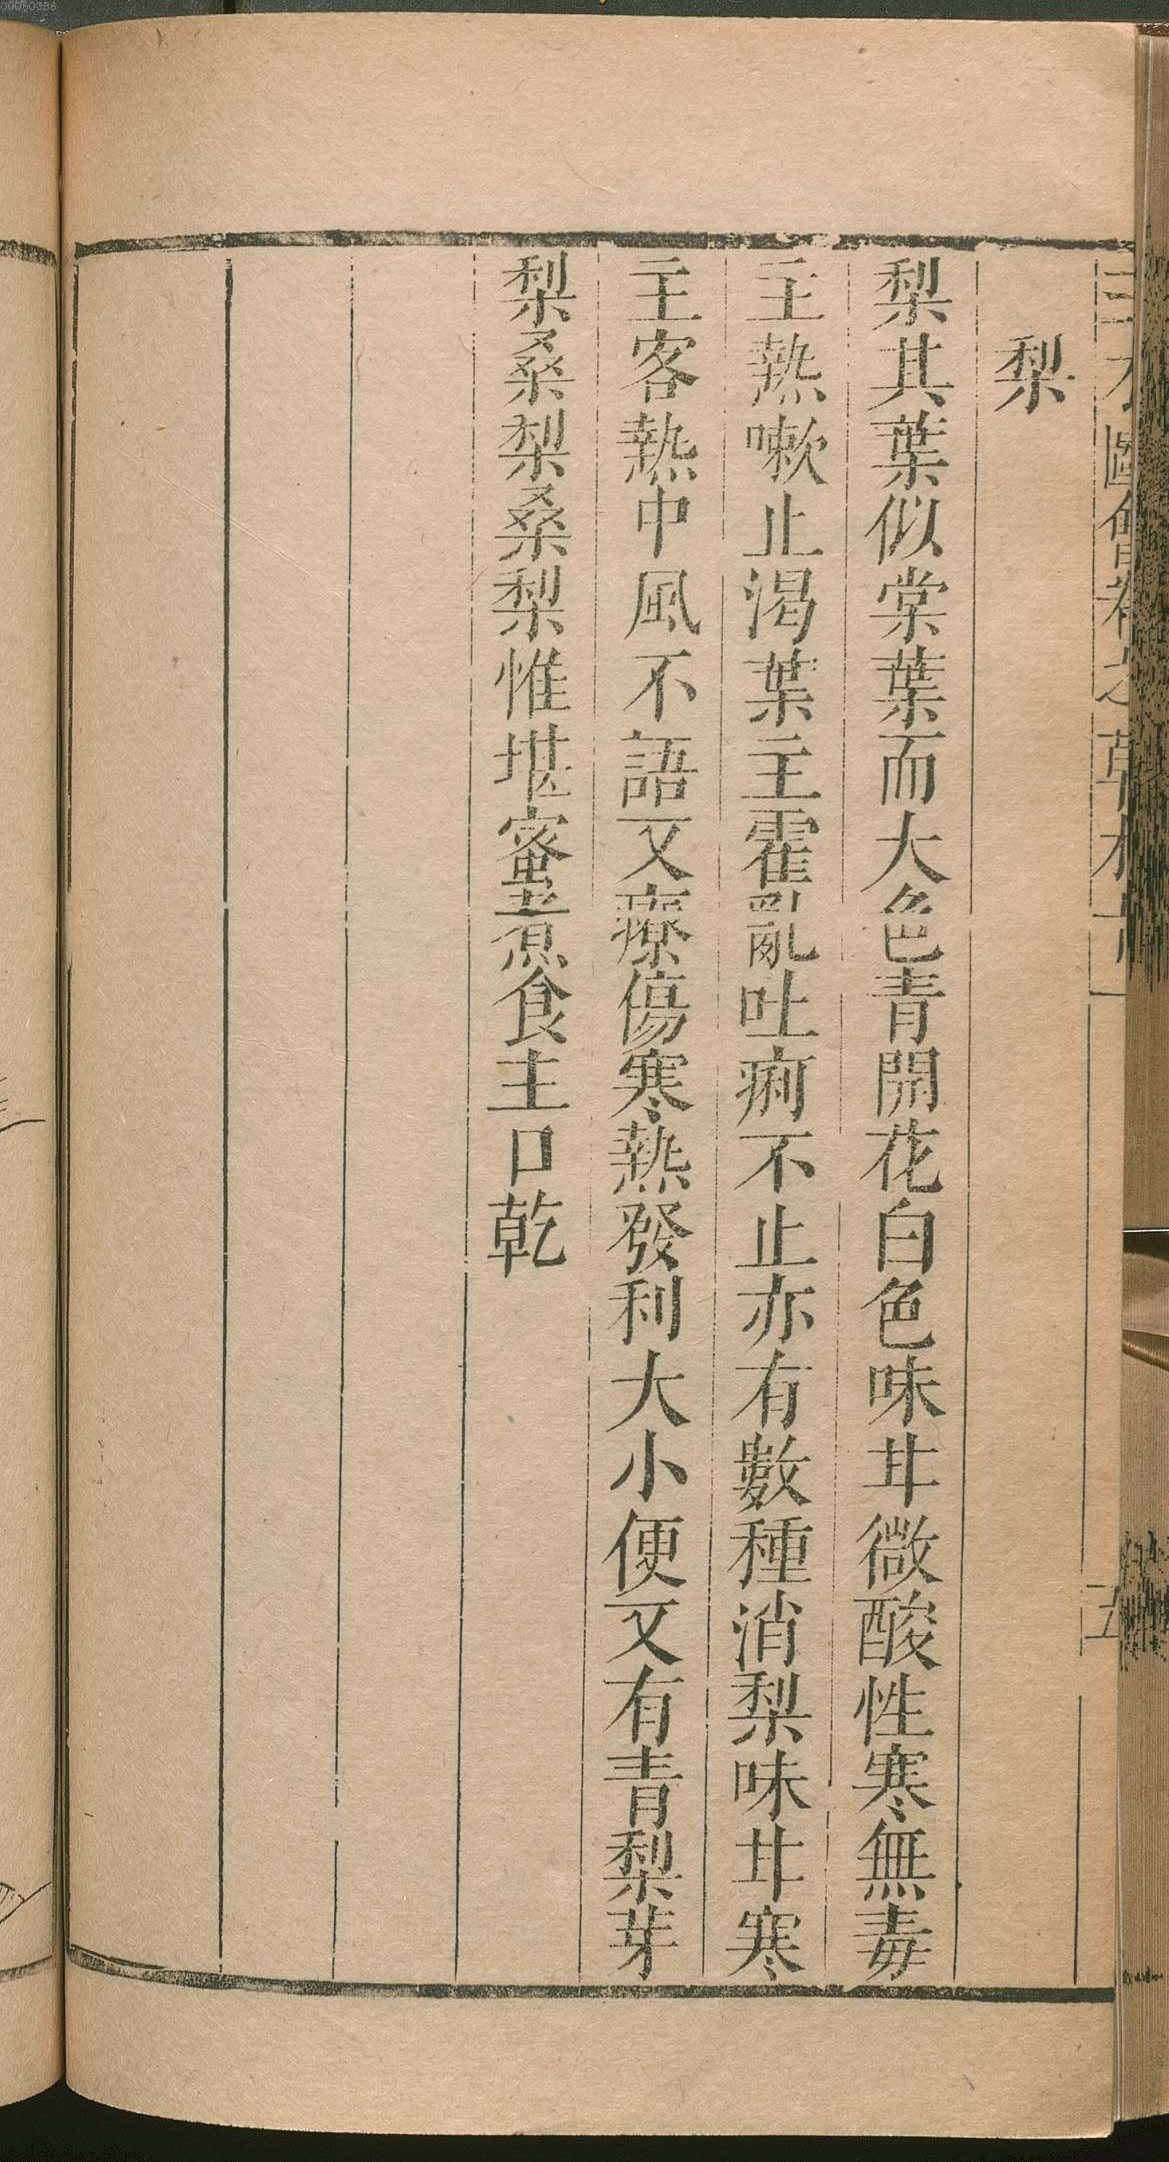 梨
梨其葉似棠葉而大色青開花白色味甘微酸性寒無毒
主熱嗽止渴葉主霍亂吐痢不止亦有數種消梨味甘寒
主客熱中風不語又療傷寒熱發利大小便又有青梨芽
梨桑梨桑梨惟堪蜜煮食主口乾
00060356